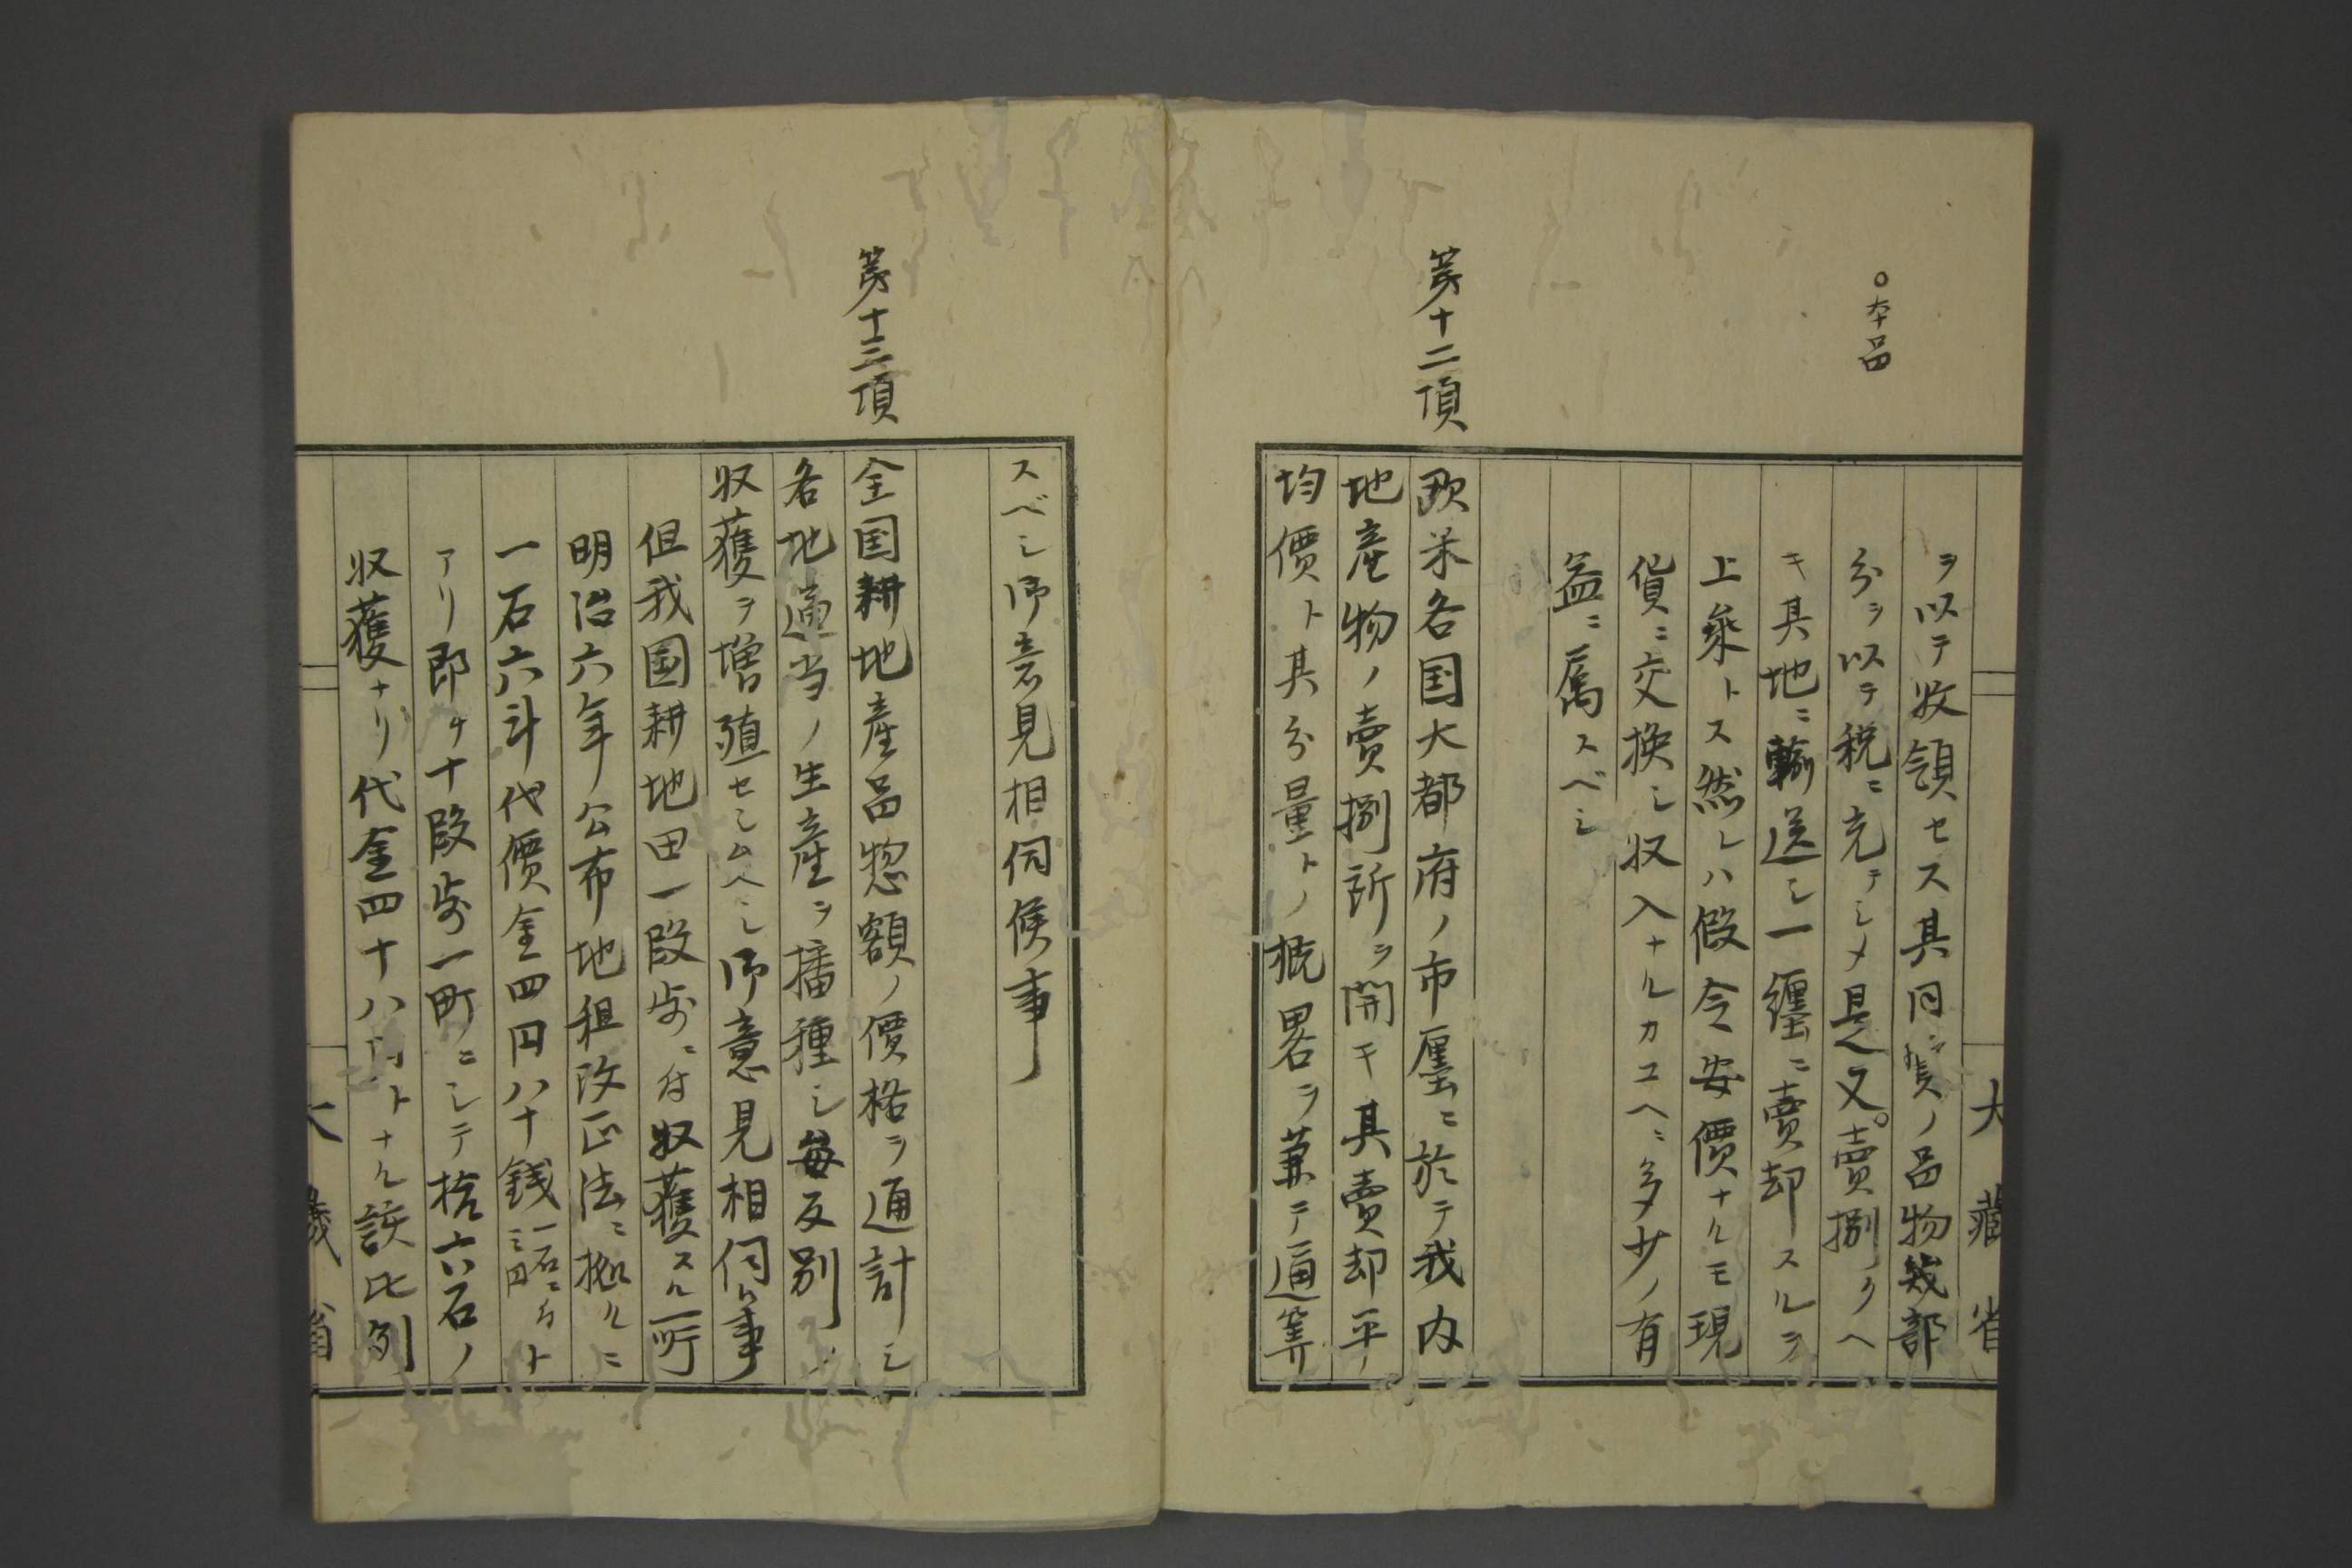 大藏省
○本品
ヲ以テ收領セス其同質ノ品物幾部
分ヲ以テ税ニ充テシメ是又○賣捌クヘ
キ其地ニ輸送シ一纏ニ賣却スルヲ
上乗トス然レハ假令安價ナルモ現
貨ニ交換シ収入ナルカユヘニ多少ノ有
益ニ属スベシ
第十二項
欧米各国大都府ノ市廛ニ於テ我内
地産物ノ賣捌所ヲ開キ其賣却平
均價ト其分量トノ概畧ヲ兼テ逼筭
スベシ御意見相伺候事
第十三項
全国耕地産品惣額ノ價格ヲ通計シ
各地適当ノ生産ヲ播種シ毎反別ニ
収獲ヲ増殖セシムヘシ御意見相伺候事
但我国耕地田一段歩ニ付収獲スル所
明治六年公布地租改正法ニ拠ルニ
一石六斗代價金四円八十銭一石ニ付三円ト
アリ即チ十段歩一町ニシテ拾六石ノ
収獲ナリ代金四十八円トナル該比例
大藏省